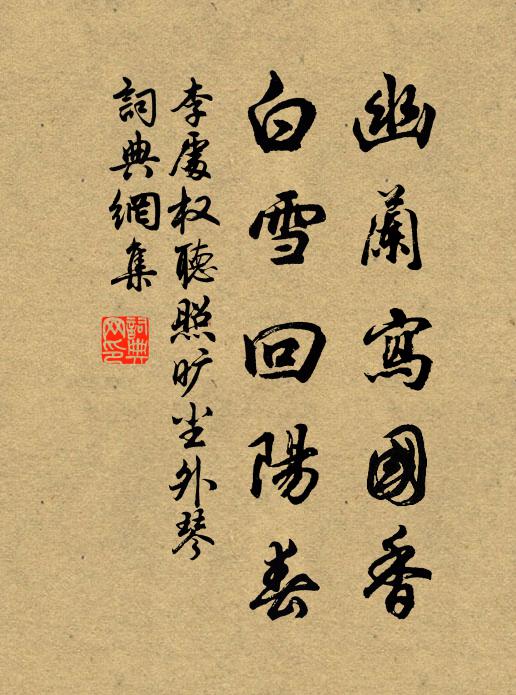 幽蘭寫國香
白雪回陽春
李處权聽照旷尘外琴
詞典網集
詞典網印